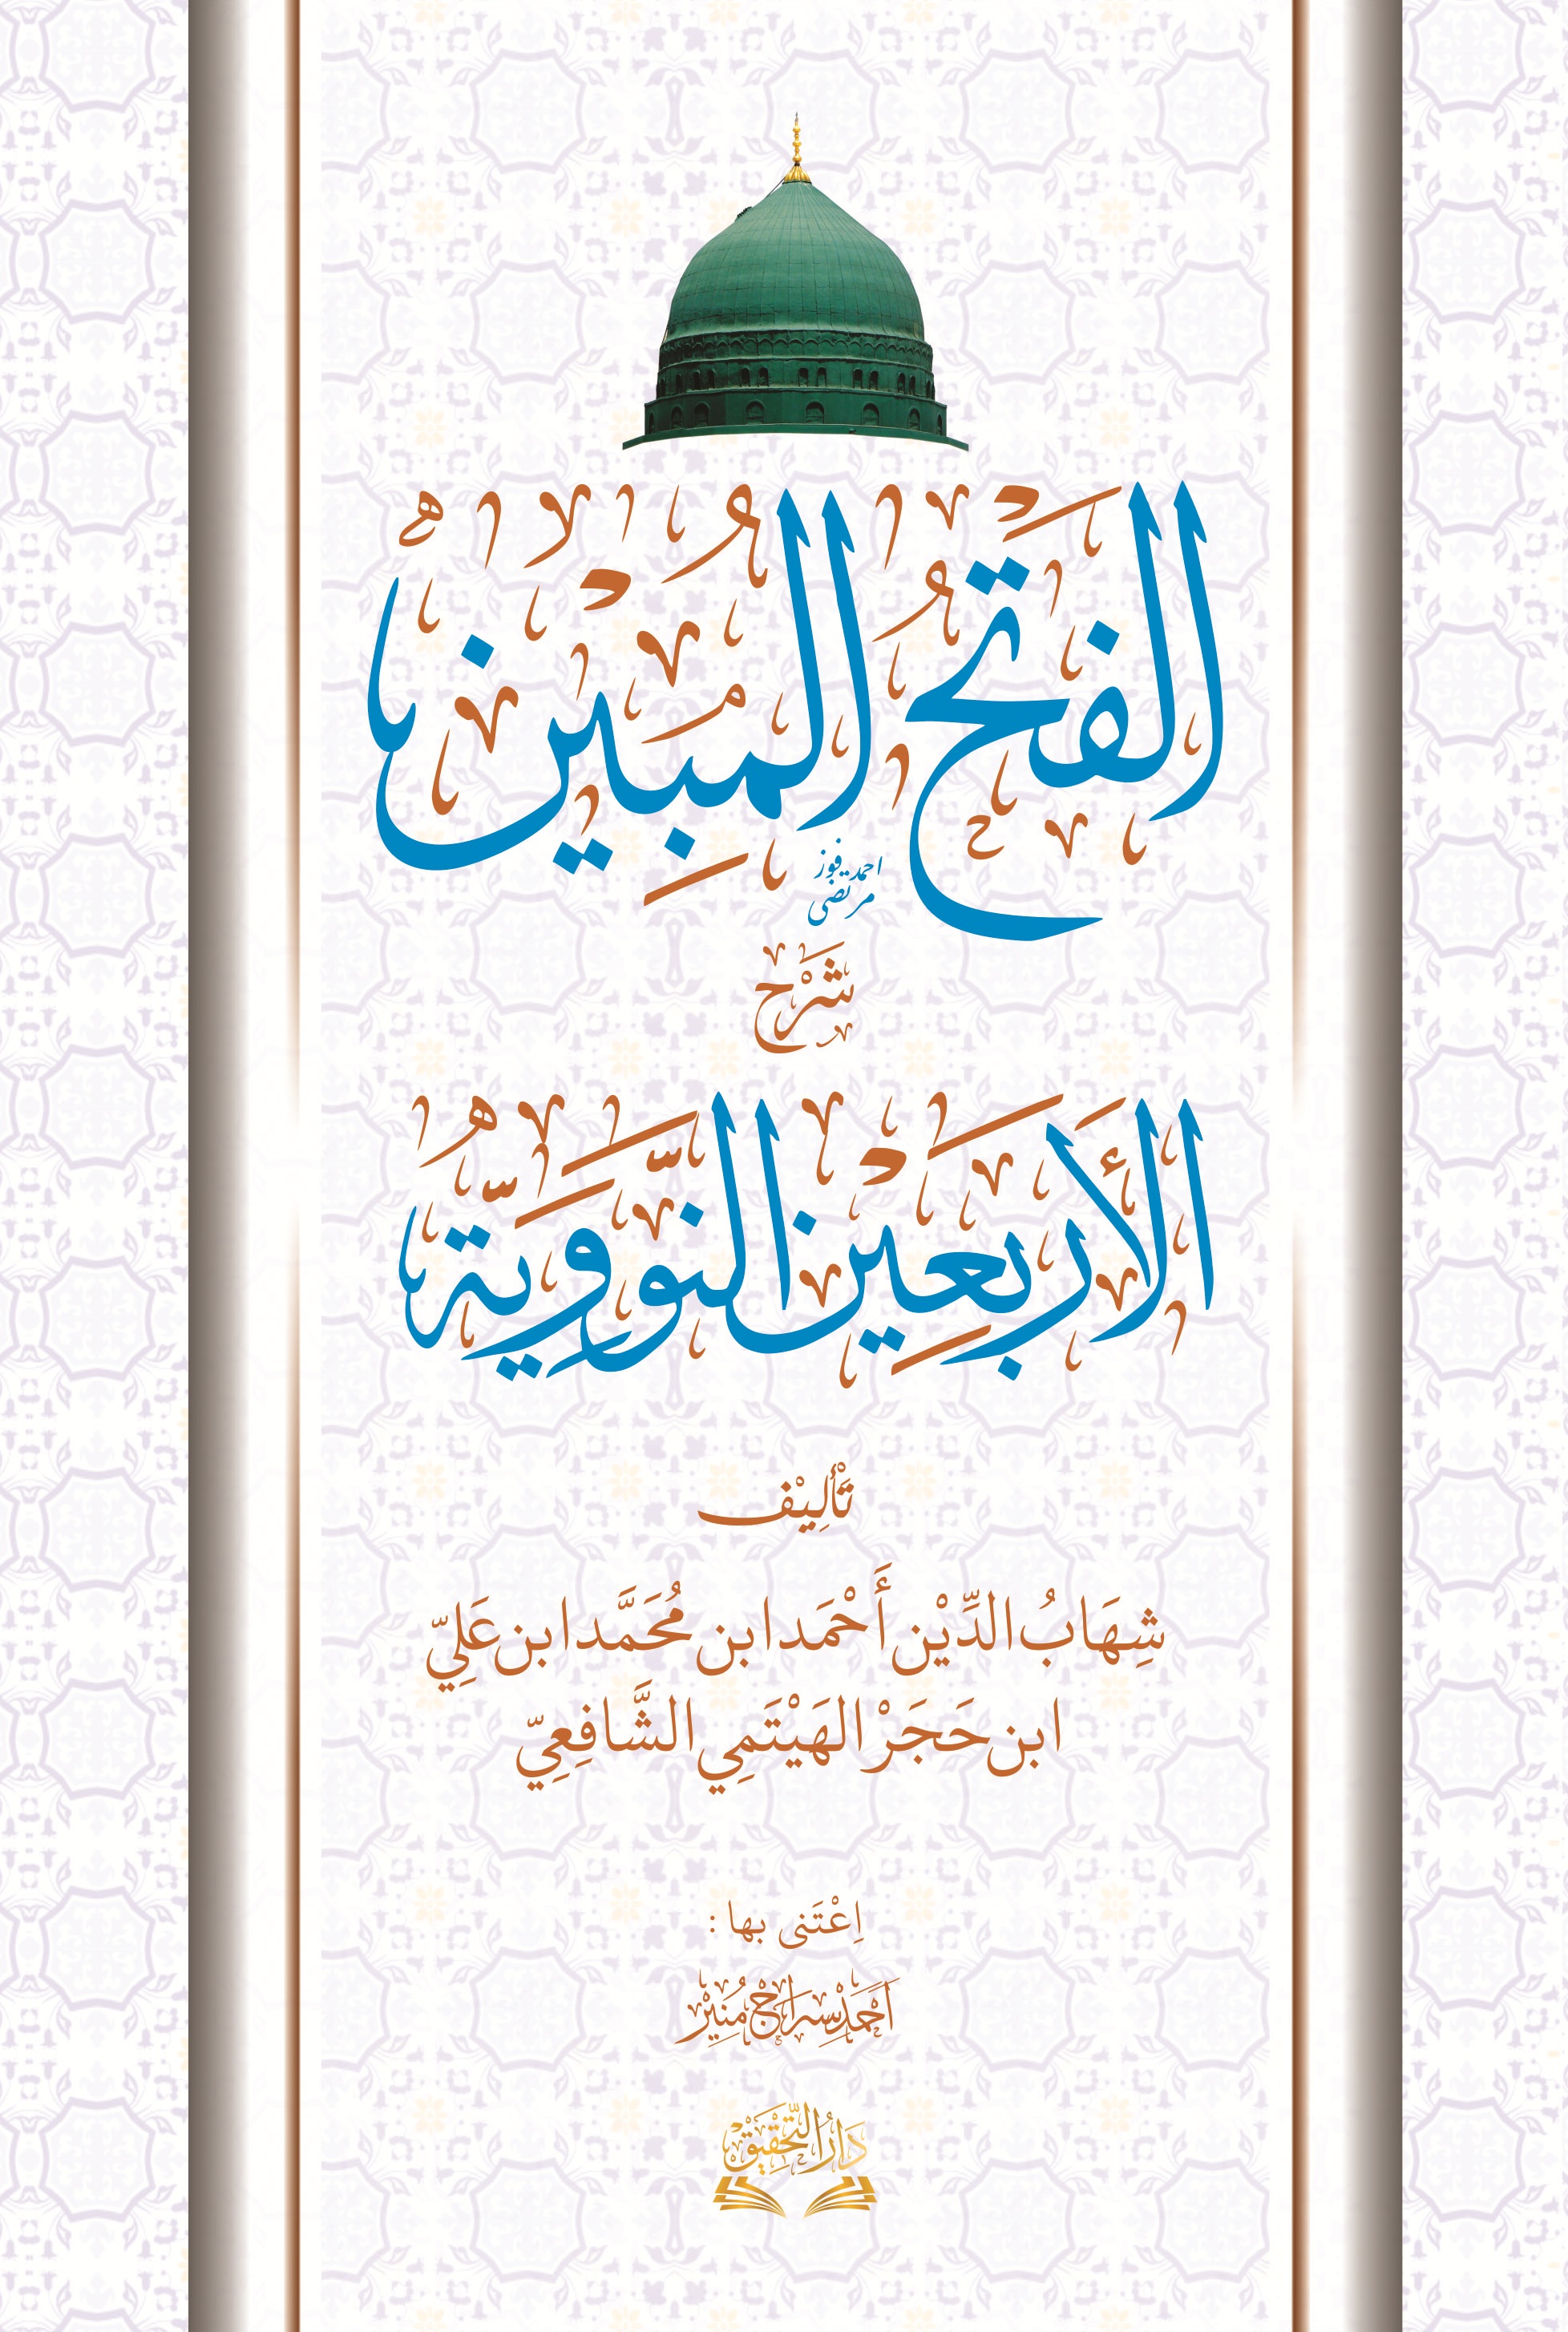 الفَتْحُ المُبِيْن
احمد فوز
مرتضى
شَرْح
الأَرْبَعِيْن النَّوَوِيَّة
تَأْلِيْف
شِهَابُ الدِّيْن أَحْمَد ابن مُحَمَّد ابن عَلِيّ
ابن حَجَرْ الهَيْتَمِي الشَّافِعِيّ
اِعْتَنى بها :
أَحْمَدْ سِرَاجْ مُنِيْرْ
دَارُ التَّحْقِيْق